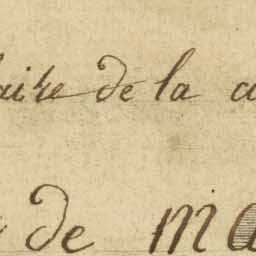 aire de la
de ma